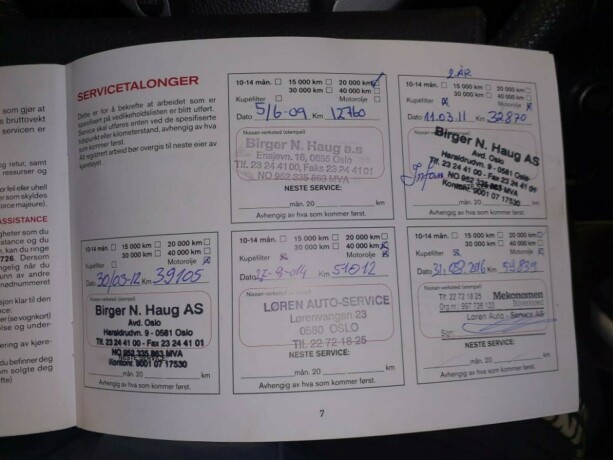 som gjør at
s bruttovekt
servicen er
g retur, samt
ressurser og
or feil eller uhell
som skyldes
orce majeure).
ASSISTANCE
gheter som du
stance og du
n, kan du ringe
726. Dersom
ngelig når du
unn av andre
nødnummeret
sjon klar til den
se vognkort)
else og under-
ering av kjøre-
du befinner deg
som solgte deg
SERVICETALONGER
Dette er for å bekrefte at arbeidet som er
spesifisert på vedlikeholdslisten er blitt utført.
Service skal utføres enten ved de spesifiserte
tidspunkt eller kilometerstand, avhengig av hva
som kommer først.
Alt registrert arbeid bør overgis til neste eier av
kjøretøyet.
10-14 mån. 15 000 km 20 000 km
30 000 km 40 000 km
Kupéfilter Motorolje
Dato 5/6-09. Km 12760
Nissan-verksted (stempel)
Birger N. Haug a.s
Ensjøvn. 16, 0655 Oslo
Tlf. 23 24 41 00, Faks 23 24 41 01
NO 952 335 863 MVA
NESTE SERVICE:
mån. 20 km
Avhengig av hva som kommer først.
2 ÅR
10-14 mån. 15 000 km 20 000 km
30 000 km 40 000 km
Kupéfilter Motorolje
Dato 11.03.11 Km 32870
Birger N. Haug AS
Avd. Oslo
Haraldrudvn. 9 - 0581 Oslo
Tlf. 23 24 41 00 - Fax 23 24 41 01
NO 952 335 863 MVA
Kontonr. 9001 07 17530
mån. 20 km
Avhengig av hva som kommer først.
10-14 mån. 15 000 km 20 000 km
30 000 km 40 000 km
Kupéfilter Motorolje
Dato 30/03-12 Km 39105
Birger N. Haug AS
Avd. Oslo
Haraldrudvn. 9 - 0581 Oslo
Tlf. 23 24 41 00 - Fax 23 24 41 01
NO 952 335 863 MVA
Kontonr. 9001 07 17530
mån. 20 km
Avhengig av hva som kommer først.
10-14 mån. 15 000 km 20 000 km
30 000 km 40 000 km
Kupéfilter Motorolje
Dato Km 51012
Nissan-verksted (stempel)
LØREN AUTO-SERVICE
Lørenvangen 23
0580 OSLO
Tlf. 22 72 18 25
NESTE SERVICE:
mån. 20 km
Avhengig av hva som kommer først.
10-14 mån. 15 000 km 20 000 km
30 000 km 40 000 km
Kupéfilter Motorolje
Dato Km
Nissan-verksted (stempel)
Tlf: 22 72 18 25 Mekonomen
Løren Auto - Service AS
NESTE SERVICE:
mån. 20 km
Avhengig av hva som kommer først.
7